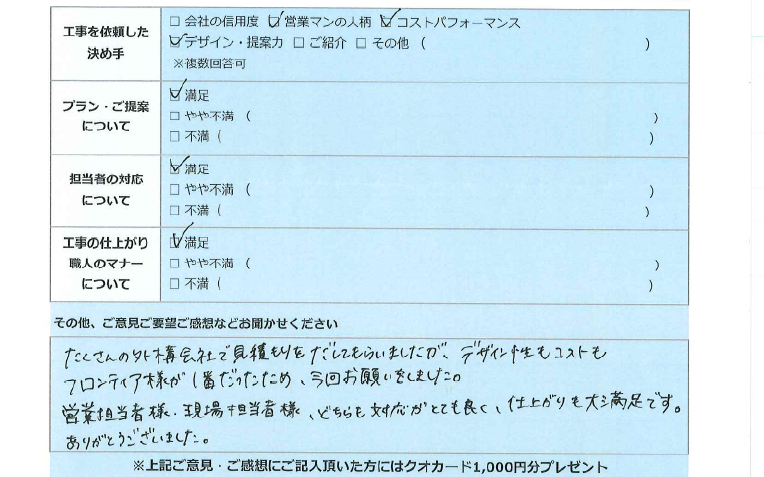 工事を依頼した
決め手
□ 会社の信用度 ☑ 営業マンの人柄 ☑ コストパフォーマンス
☑ デザイン・提案力 □ ご紹介 □ その他 ( )
※複数回答可
プラン・ご提案
について
☑ 満足
□ やや不満 ( )
□ 不満 ( )
担当者の対応
について
☑ 満足
□ やや不満 ( )
□ 不満 ( )
工事の仕上がり
職人のマナー
について
☑ 満足
□ やや不満 ( )
□ 不満 ( )
その他、ご意見ご要望ご感想などお聞かせください
たくさんの外構会社で見積もりをだしてもらいましたが、デザイン性もコストも
フロンティア様が1番だったため、今回お願いをしました。
営業担当者様・現場担当者様、どちらも対応がとても良く、仕上がりも大満足です。
ありがとうございました。
※上記ご意見・ご感想にご記入頂いた方にはクオカード1,000円分プレゼント